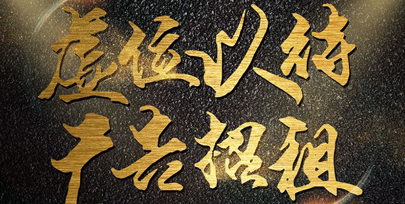 虚位以待
广告招租